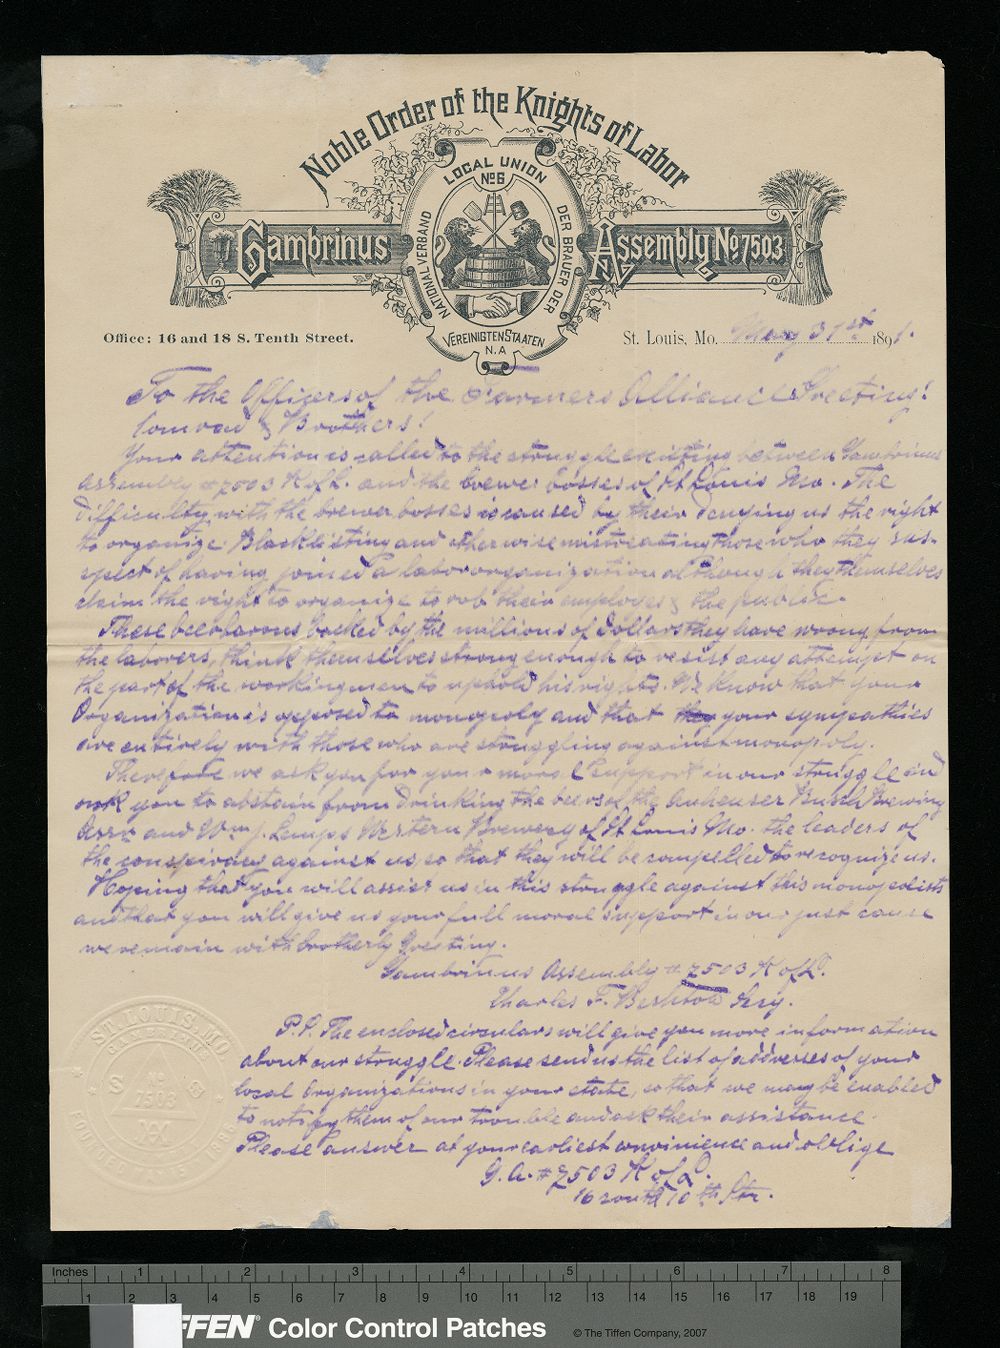 Noble Order of the Knights of Labor
LOCAL UNION
No 6
NATIONALVERBAND
DER BRAUER DER
VEREINIGTEN STAATEN
N.A
Gambrinus
Assembly No. 7503
Office: 16 and 18 S. Tenth Street.
St. Louis, Mo. May 31st 1891.
To the Officers of the Farmers Alliance Greeting!
Comrad & Brothers!
Your attention is called to the struggle existing between Gambrinus
Assembly #7503 K of L. and the brewer bosses of St Louis Mo. The
difficulty with the brewer bosses is caused by their denying us the right
to organize. Blacklisting and otherwise mistreating those who they sus-
spect of having joined a labor organization although they themselves
claim the right to organize to rob their employes & the public.
These beerbarons backed by the millions of dollars they have wrong from
the laborers, think themselves strong enough to resist any attempt on
the part of the workingmen to uphold his rights. We know that your
Organization is opposed to monopoly and that your sympathies
are entirely with those who are struggling against monopoly.
Therefore we ask you for your moral support in our struggle and
ask you to abstain from drinking the beers of the Anheuser Busch Brewing
Assn and Wm J. Lemps Western Brewery of St Louis Mo. the leaders of
the conspiracy against us, so that they will be compelled to recognize us.
Hoping that you will assist us in this struggle against this monopolists
and that you will give us your full moral support in our just cause
we remain with brotherly Greeting.
Gambrinus Assembly #7503 K of L.
Charles F. Secy.
P.S. The enclosed circulars will give you more information
about our struggle. Please send us the list of addresses of your
local Organizations in your state, so that we may be enabled
to notify them of our trouble and ask their assistance.
Please answer at your earliest convinience and oblige
G.A. #7503 K of L.
16 south 10th Str.
ST. LOUIS, MO
7503
Inches 1 2 3 4 5 6 7 8
1 2 3 4 5 6 7 8 9 10 11 12 13 14 15 16 17 18 19
FFEN® Color Control Patches © The Tiffen Company, 2007